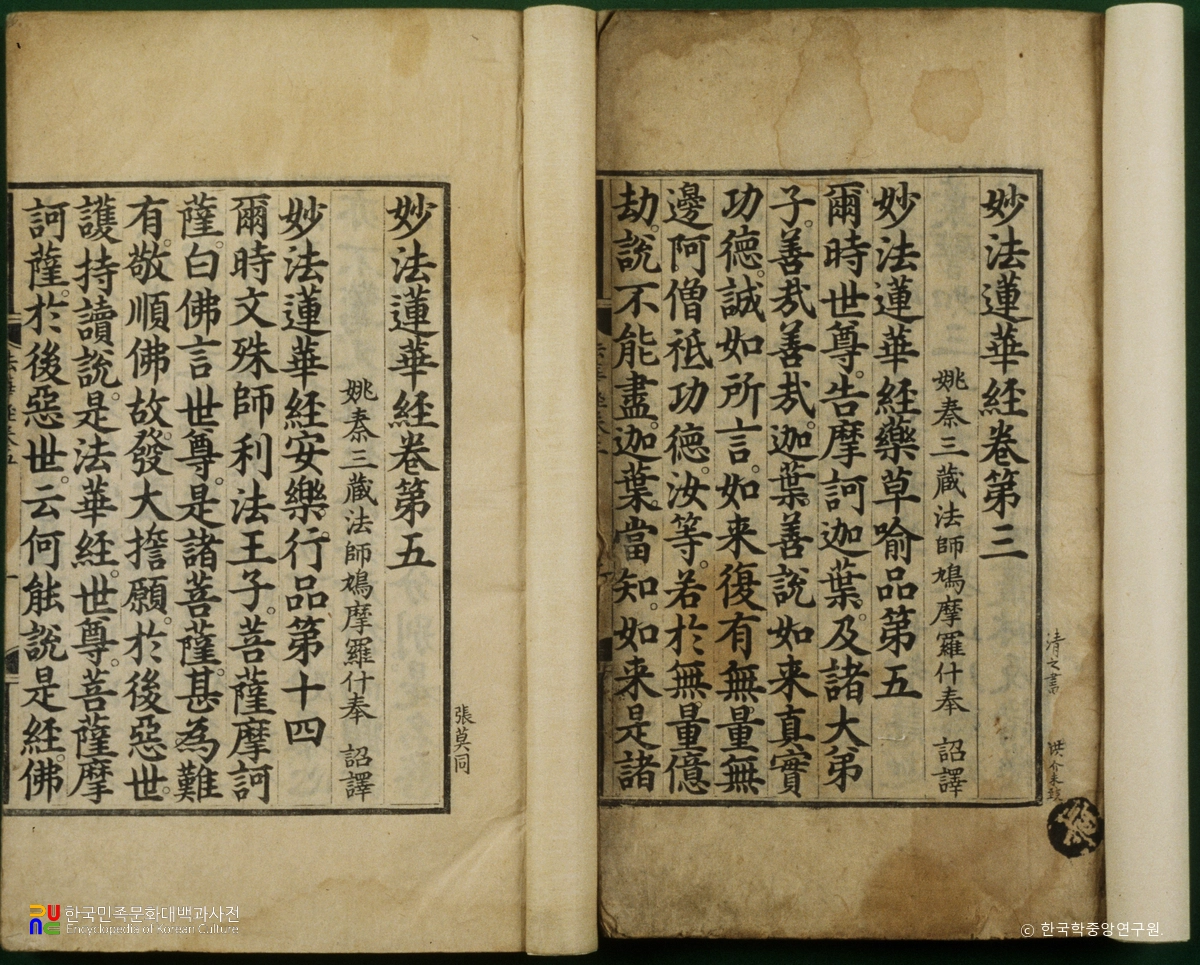 妙法蓮華経卷第三
姚秦三蔵法師鳩摩羅什奉 詔譯
妙法蓮華経藥草喻品第五
爾時世尊。告摩訶迦葉。及諸大弟
子。善㢤善㢤。迦葉。善說如来真實
功德。誠如所言。如来復有無量無
邊阿僧祇功德。汝等。若於無量億
劫。說不能盡。迦葉。當知。如来是諸
妙法蓮華経卷第五
姚秦三蔵法師鳩摩羅什奉 詔譯
妙法蓮華経安樂行品第十四
爾時文殊師利法王子。菩薩摩訶
薩。白佛言世尊。是諸菩薩。甚為難
有。敬順佛故。發大擔願。於後惡世。
護持讀說。是法華経。世尊。菩薩摩
訶薩。於後惡世。云何能說是経。佛
張莫同
한국민족문화대백과사전
Encyclopedia of Korean Culture
ⓒ 한국학중앙연구원.